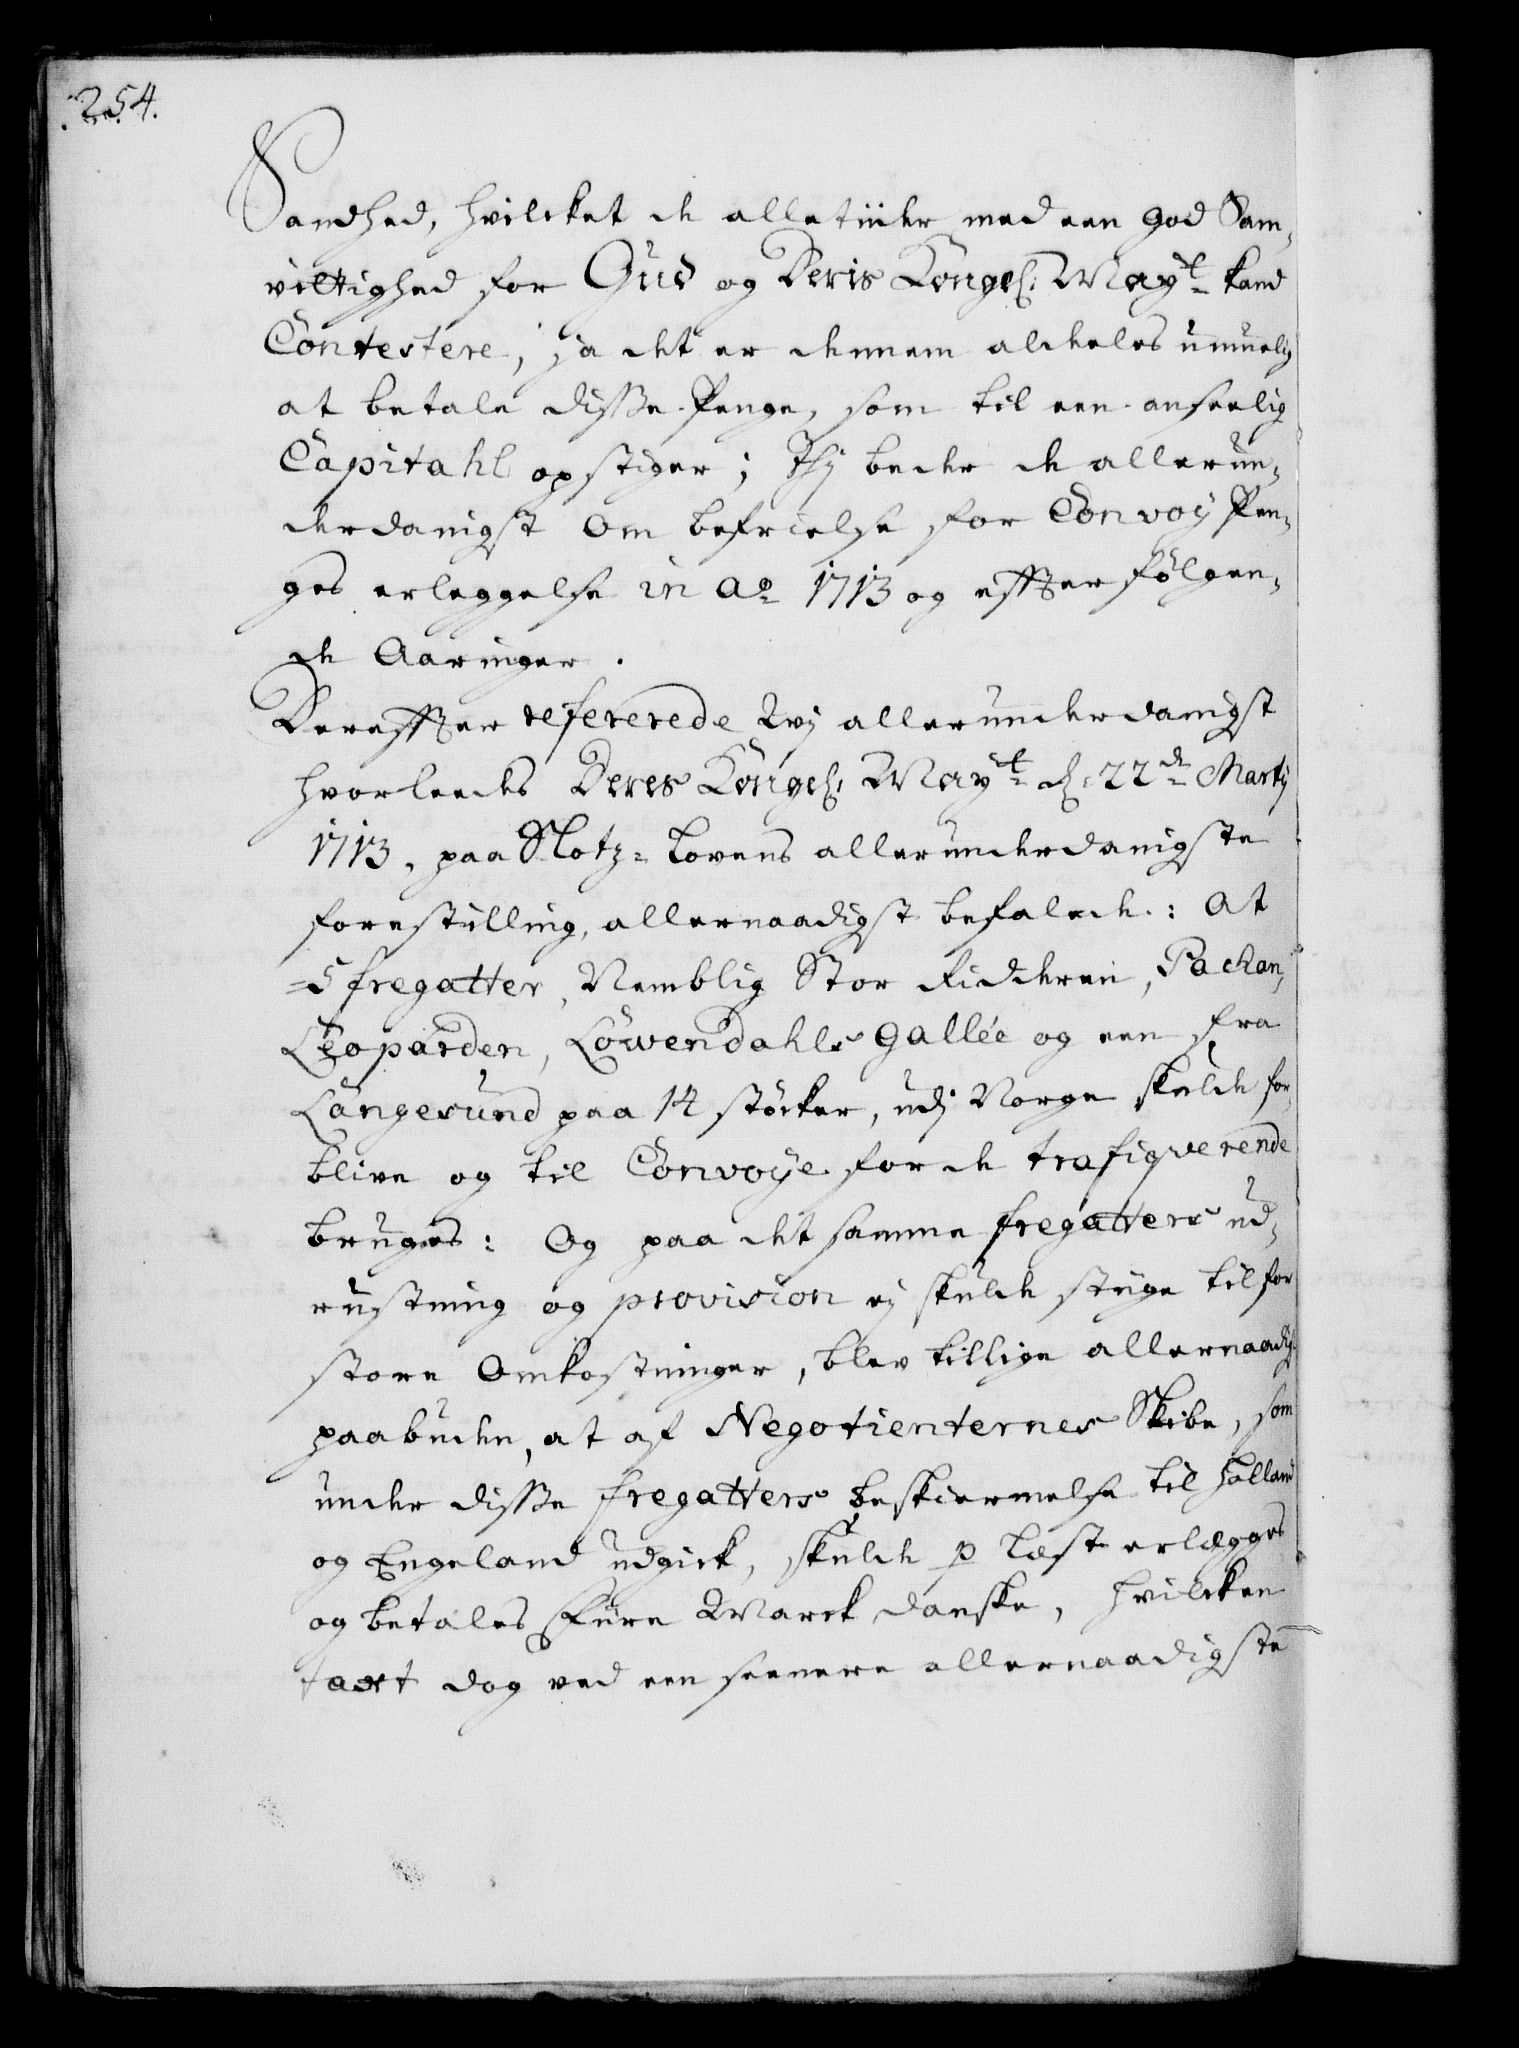 254.
Sandhed, hvilcket de alletiider med een god Sam-
vittighed for Gud og Deris Kongel: Mayt kand
Contestere; ja det er dennem aldeles umuelig
at betale disse Penge, som til een anseelig
Capitahl opstiger; Thj beder de allerun-
derdanigst om befrielse for Convoy Pen-
ges erleggelse in Ao 1713 og effter følgen-
de Aaringer.
Dereffter refererede Wj allerunderdanigst
hvorleedes Deres Kongel: Mayt d: 22de Martij
1713, paa Slotz-Lovens allerunderdanigste
forestilling, allernaadigst befalede: At
5 fregatter, Nemblig Stor Ridderen, Packan,
Leoparden, Löwendahls Gallée og een fra
Langesund paa 14 støcker, udj Norge skulde for-
blive og til Convoÿe for de trafiqverende
bruges: Og paa det samme fregatters ud-
rustning og provision ej skulde stiige til for
store Omkostninger, blev tillige allernaadigst
paabuden, at af Negotienternes Skibe, som
under disse fregatters beskiermelse til Holland
og Engeland udgick, skulde p Læst erlægges
og betales Fiire Marck danske, hvilcken
taxt dog ved een seenere allernaadigste